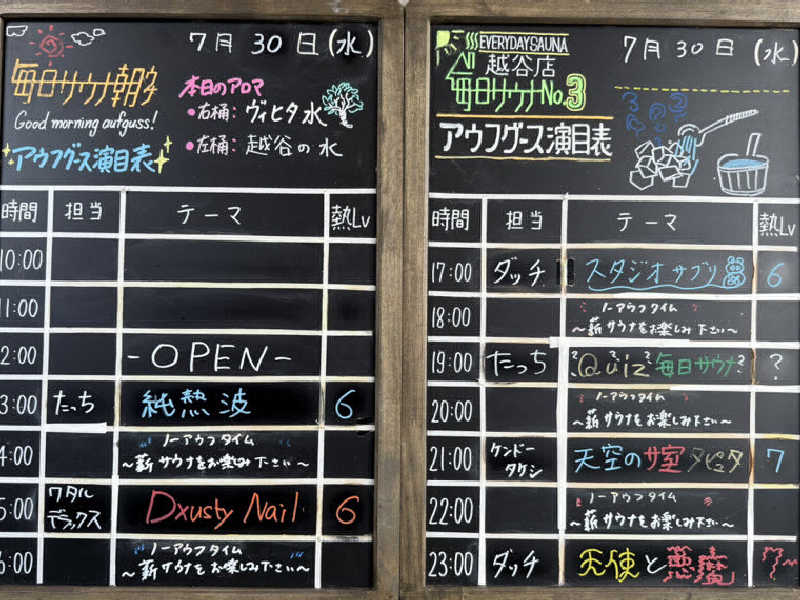 7月30日(水)
毎日サウナ朝夕
Good morning aufguss!
アウフグース演目表
本日のアロマ
•右桶:ヴィヒタ水
•左桶:越谷の水
時間 担当 テーマ 熱Lv
10:00
11:00
2:00 -OPEN-
3:00 たっち 純熱波 6
4:00 ノーアウフタイム
~薪サウナをお楽しみ下さい~
5:00 ワタル デラックス Dxusty Nail 6
6:00 ノーアウフタイム
~薪サウナをお楽しみ下さい~
EVERYDAYSAUNA
越谷店
毎日サウナNo.3
アウフグース演目表
7月30日(水)
時間 担当 テーマ 熱Lv
17:00 ダッチ スタジオサブリ 6
18:00 ノーアウフタイム
~薪サウナをお楽しみ下さい~
19:00 たっち ?Quiz?毎日サウナ? ?
20:00 ノーアウフタイム
~薪サウナをお楽しみ下さい~
21:00 ケンドー タケシ 天空のサ室タピュタ 7
22:00 ノーアウフタイム
~薪サウナをお楽しみ下さい~
23:00 ダッチ 天使と悪魔